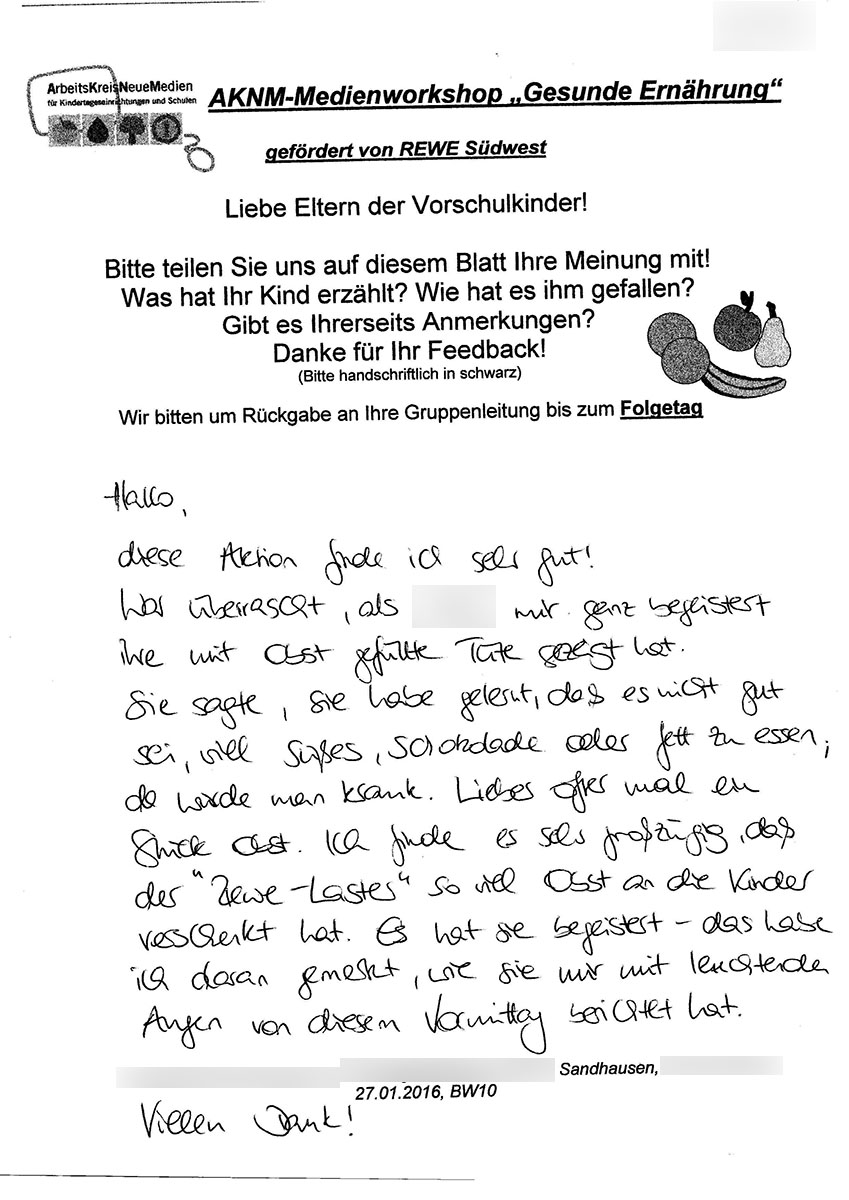 ArbeitsKreisNeueMedien
für Kindertageseinrichtungen und Schulen
AKNM-Medienworkshop „Gesunde Ernährung“
gefördert von REWE Südwest
Liebe Eltern der Vorschulkinder!
Bitte teilen Sie uns auf diesem Blatt Ihre Meinung mit!
Was hat Ihr Kind erzählt? Wie hat es ihm gefallen?
Gibt es Ihrerseits Anmerkungen?
Danke für Ihr Feedback!
(Bitte handschriftlich in schwarz)
Wir bitten um Rückgabe an Ihre Gruppenleitung bis zum Folgetag
Hallo,
diese Aktion finde ich sehr gut!
War überrascht, als mir ganz begeistert
ihre mit Obst gefüllte Tüte gezeigt hat.
Sie sagte, sie habe gelernt, daß es nicht gut
sei, viel Süßes, Schokolade oder fett zu essen,
da werde man krank. Lieber öfter mal ein
Stück Obst. Ich finde es sehr großzügig, daß
der "Rewe-Laster" so viel Obst an die Kinder
verschenkt hat. Es hat sie begeistert – das habe
ich daran gemerkt, wie sie mir mit leuchtenden
Augen von diesem Vormittag berichtet hat.
Sandhausen,
27.01.2016, BW10
Vielen Dank!